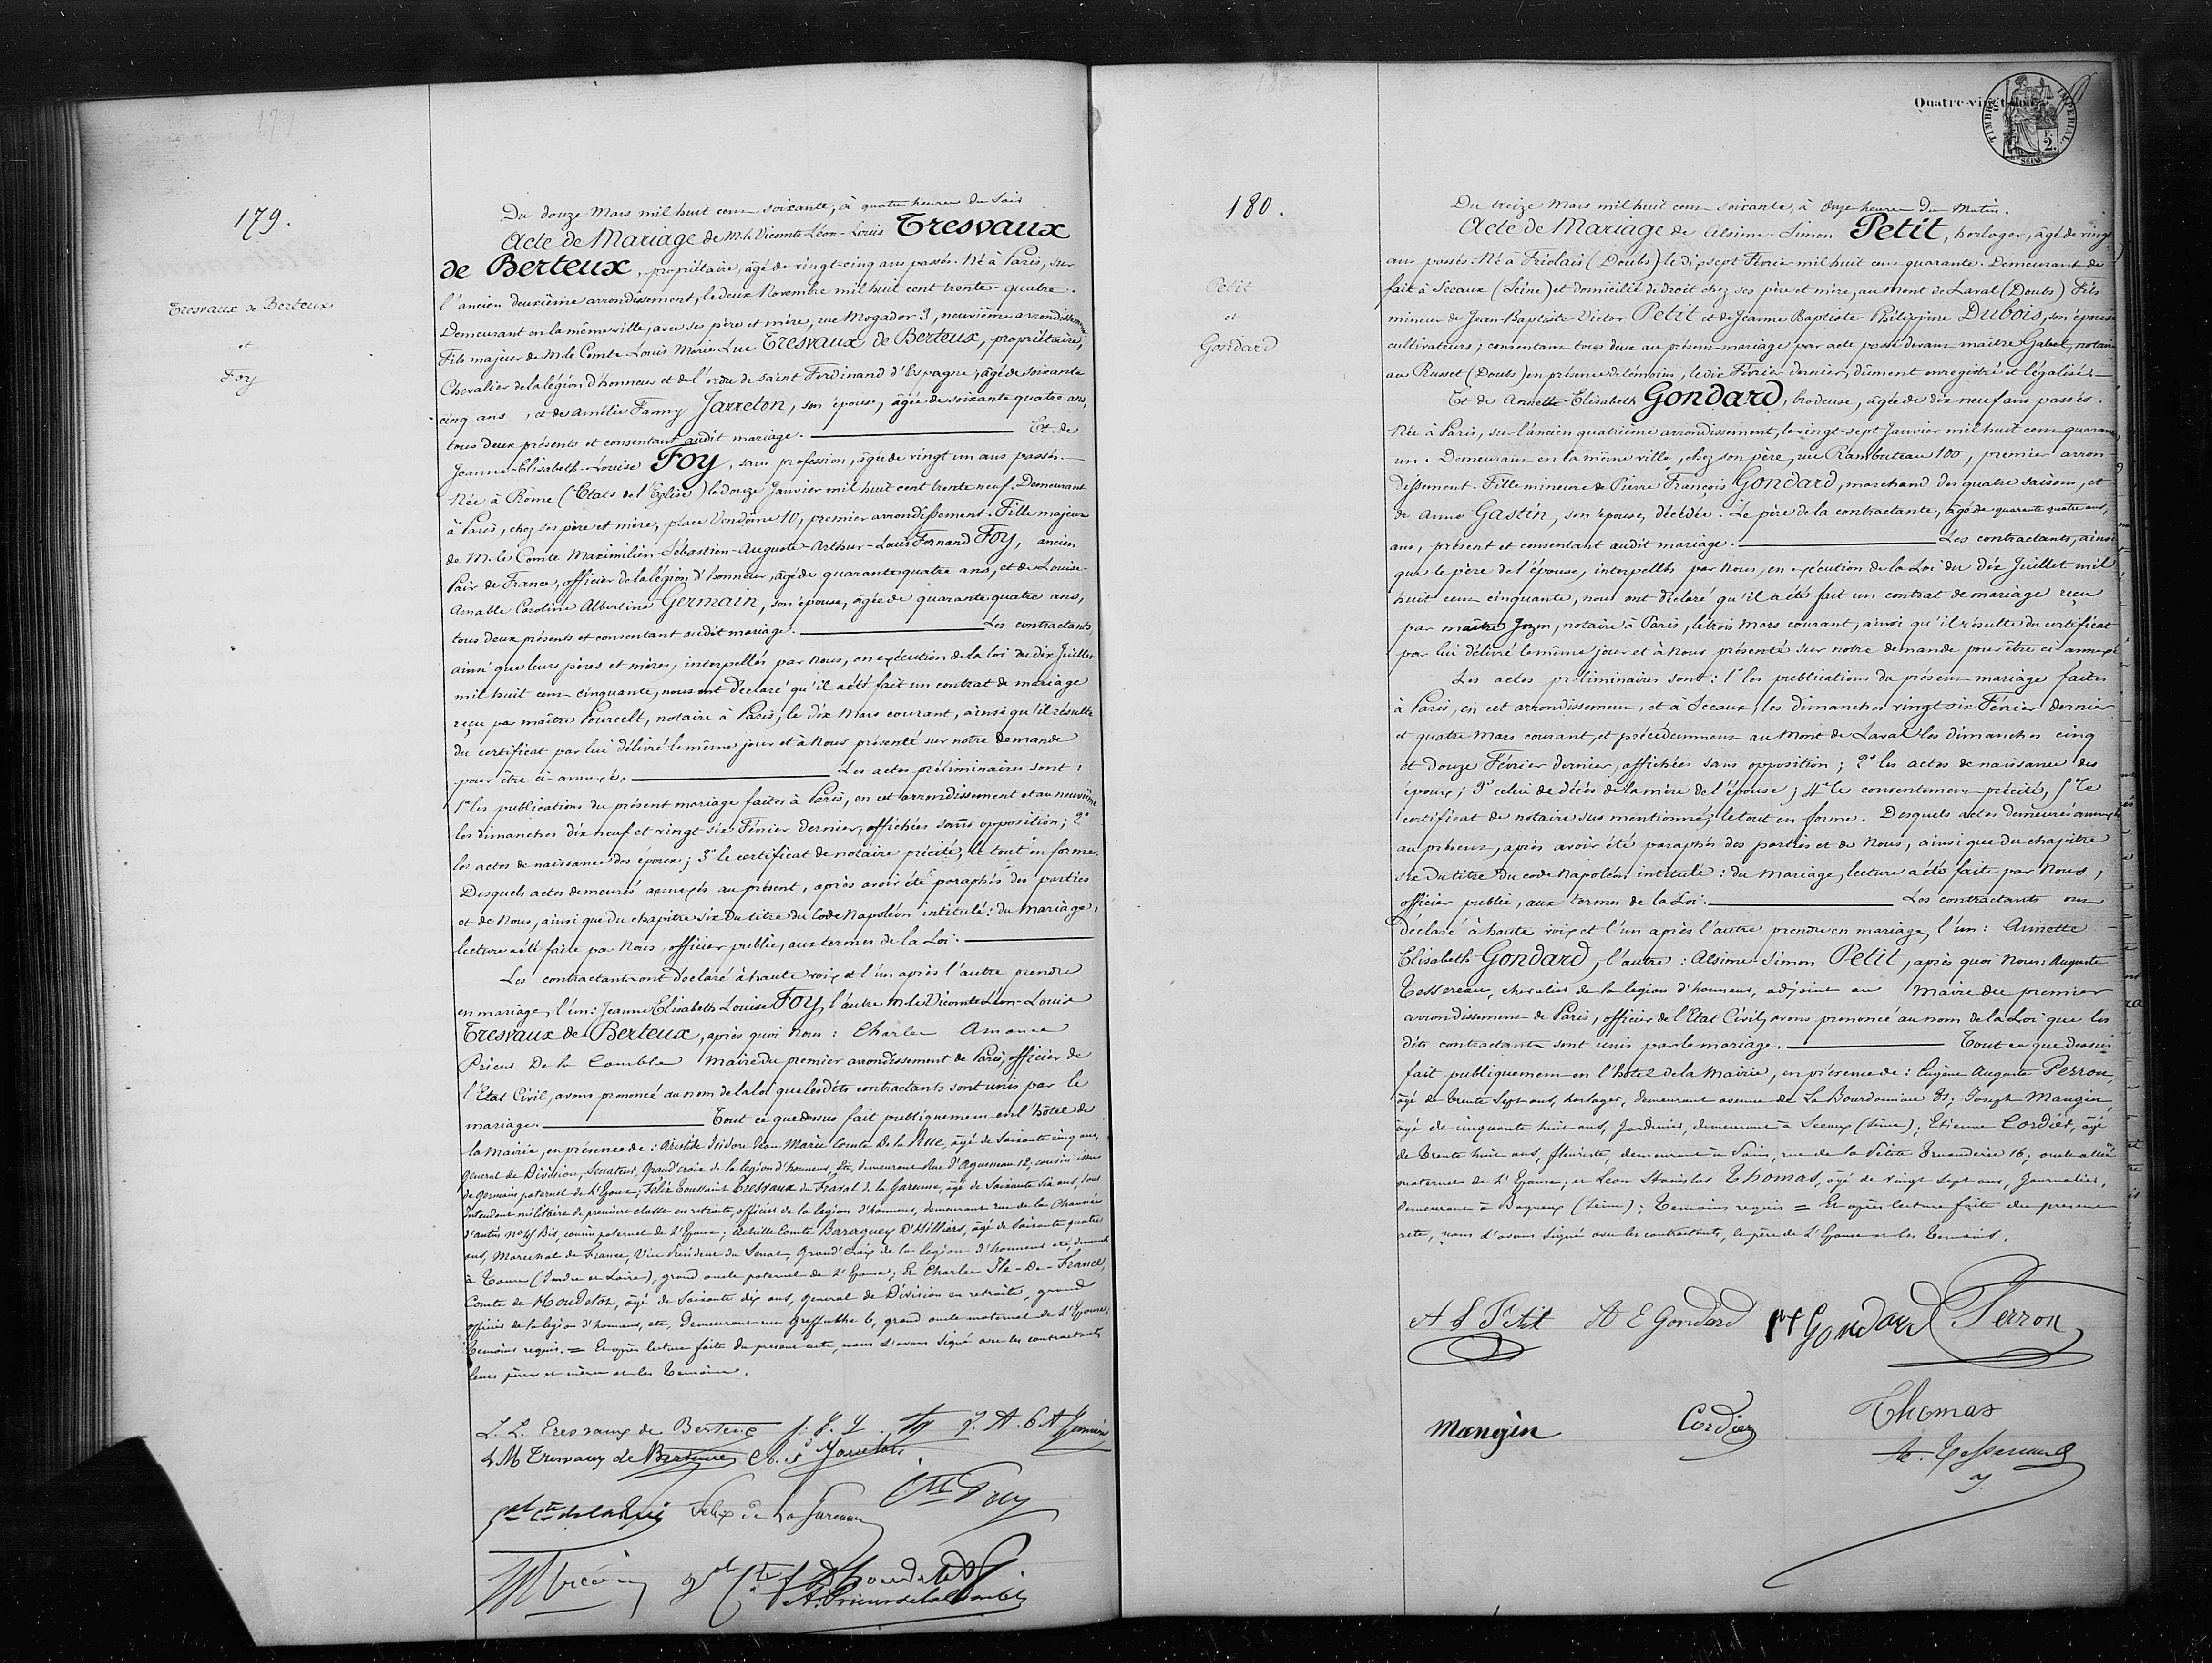 179.
Tresvaux de Berteux
et
Foy
Du douze Mars mil huit cent soixante, à quatre heures du Soir
Acte de Mariage de M. le Vicomte Léon-Louis Tresvaux
de Berteux, propriétaire, âgé de vingt-cinq ans passés. Né à Paris, sur
l'ancien deuxième arrondissement, le deux Novembre mil huit cent trente-quatre.
Demeurant en la même ville, avec ses père et mère, rue Mogador 3, neuvième arrondissement
Fils majeur de M. le Comte Louis Marie Luc Tresvaux de Berteux, propriétaire,
Chevalier de la légion d'honneur et de l'ordre de Saint Ferdinand d'Espagne, âgé de soixante
cinq ans, et de Amélie Fanny Jarreton, son épouse, âgée de soixante quatre ans,
tous deux présents et consentant audit mariage. Et de
Jeanne-Elisabeth-Louise Foy, sans profession, âgée de vingt un ans passés.
Née à Rome (Etats de l'Eglise) le douze Janvier mil huit cent trente neuf. Demeurant
à Paris, chez ses père et mère, place Vendôme 10, premier arrondissement. Fille majeure
de M. le Comte Maximilien-Sébastien-Auguste-Arthur-Louis Fernand Foy, ancien
Pair de France, officier de la légion d'honneur, âgé de quarante quatre ans, et de Louise
Amable Caroline Albertine Germain, son épouse, âgée de quarante quatre ans,
tous deux présents et consentant audit mariage. Les contractants,
ainsi que leurs pères et mères, interpellés par Nous, en exécution de la loi du dix Juillet
mil huit cent cinquante, nous ont déclaré qu'il a été fait un contrat de mariage
reçu par maître Pourcelt, notaire à Paris, le dix Mars courant, ainsi qu'il résulte
du certificat par lui délivré le même jour et à Nous présenté sur notre demande
pour être ci-annexé. Les actes préliminaires sont:
1° les publications du présent mariage faites à Paris, en cet arrondissement et au neuvième
les dimanches dix neuf et vingt six Février dernier, affichées sans opposition; 2°
les actes de naissance des époux; 3° le certificat de notaire précité, le tout en forme.
Desquels actes demeurés annexés au présent, après avoir été paraphés des parties
et de Nous, ainsi que du chapitre six du titre du Code Napoléon intitulé: du Mariage,
lecture a été faite par Nous, officier public, aux termes de la Loi.
Les contractants ont déclaré à haute voix et l'un après l'autre prendre
en mariage, l'un: Jeanne Elisabeth Louise Foy, l'autre M. le Vicomte Léon-Louis
Tresvaux de Berteux, après quoi Nous: Charles Amance
Prieur De la Comble Maire du premier arrondissement de Paris, officier de
l'Etat Civil, avons prononcé au nom de la loi que lesdits contractants sont unis par le
mariage. Tout ce que dessus fait publiquement en l'hôtel de
la Mairie, en présence de: Aristide Isidore Jean Marie Comte De la Rue, âgé de Soixante cinq ans,
Général de Division, Senateur, Grand'croix de la légion d'honneur, etc, demeurant Rue d'Aguesseau 12, cousin issu
de germain paternel de l'Epoux; Félix Toussaint Tresvaux du Fraval de la Garenne, âgé de Soixante six ans, sous
Intendant militaire de première classe en retraite, officier de la légion d'honneur, demeurant rue de la Chaussée
d'antin Bis, cousin paternel de l'Epoux; Achille Comte Baraguey D'Hilliers, âgé de Soixante quatre
ans, Marechal de France, Vice President du Senat, Grand'Croix de la Légion d'honneur etc, demeurant
à Tours (Indre et Loire), grand oncle paternel de l'Epouse; Et Charles Ile-De-France,
Comte de Houdetot, âgé de Soixante dix ans, Général de Division en retraite, grand
officier de la légion d'honneur, etc, demeurant rue Greffulhe 6, grand oncle maternel de l'Epouse,
Temoins requis. = Et après lecture faite du présent acte, nous l'avons Signé avec les contractants,
leurs pères et mères et les Temoins.
L. L. Tresvaux de Berteux J. E. L. Foy L. A. C. A. Germain
L M Tresvaux de Berteux A. F. Jarreton
Gal Cte de la Rue Felix de la Garenne Cte Foy
Gal Cte d'Houdetot
A. Prieur de la Comble
180.
Petit
et
Gondard
Quatre-vingt-dou
TIMBRE IMPERIAL
F. 2.
SEINE
Du treize Mars mil huit cent soixante, à Onze heures du Matin.
Acte de Mariage de Alsime-Simon Petit, horloger, âgé de vingt
ans passés. Né à Friolais (Doubs) le dix sept Février mil huit cent quarante. Demeurant de
fait à Sceaux (Seine) et domicilié de droit chez ses père et mère, au Mont de Laval (Doubs) Fils
mineur de Jean-Baptiste-Victor Petit et de Jeanne Baptiste-Philippine Dubois, son épouse
cultivateurs; consentant tous deux au présent mariage par acte passé devant maître Gabet, notaire
au Russet (Doubs) en présence de témoins, le dix Février dernier, dûment enregistré et légalisé.
Et de Annette-Elisabeth Gondard, brodeuse, âgée de dix neuf ans passés.
Née à Paris, sur l'ancien quatrième arrondissement, le vingt-sept Janvier mil huit cent quarante
un. Demeurant en la même ville, chez son père, rue Rambuteau 100, premier arron
dissement. Fille mineure de Pierre François Gondard, marchand des quatre saisons, et
de Anne Gastin, son épouse, décédée. Le père de la contractante, âgé de quarante quatre ans,
ans, présent et consentant audit mariage. Les contractants, ainsi
que le père de l'épouse, interpellés par Nous, en exécution de la Loi du dix Juillet mil
huit cent cinquante, nous ont déclaré qu'il a été fait un contrat de mariage reçu
par maître Jozon, notaire à Paris, le trois Mars courant, ainsi qu'il résulte du certificat
par lui délivré le même jour et à Nous présenté sur notre demande pour être ci-annexé
Les actes préliminaires sont: 1° les publications du présent mariage faites
à Paris, en cet arrondissement, et à Sceaux, les dimanches vingt six Février dernier
et quatre Mars courant, et précédemment au Mont de Laval les dimanches cinq
et douze Février dernier, affichées sans opposition; 2° les actes de naissance des
époux; 3° celui de décès de la mère de l'épouse; 4° le consentement précité, 5° le
certificat de notaire sus mentionné; le tout en forme. Desquels actes demeurés annexés
au présent, après avoir été paraphés des parties et de Nous, ainsi que du chapitre
six du titre du code Napoléon intitulé: du Mariage, lecture a été faite par Nous,
officier public, aux termes de la Loi. Les contractants ont
déclaré à haute voix et l'un après l'autre prendre en mariage, l'un: Annette
Elisabeth Gondard, l'autre: Alsime-Simon Petit, après quoi Nous: Auguste
Tessereau, chevalier de la légion d'honneur, adjoint au Maire du premier
arrondissement de Paris, officier de l'Etat Civil, avons prononcé au nom de la Loi que les
dits contractants sont unis par le mariage. Tout ce que dessus
fait publiquement en l'hôtel de la Mairie, en présence de: Eugène Auguste Perron,
âgé de trente Sept ans, horloger, demeurant avenue de La Bourdonnaie 81; Joseph Mangin
âgé de cinquante huit ans, Jardinier, demeurant à Sceaux (Seine), Etienne Cordier, âgé
de Trente huit ans, fleuriste, demeurant à Paris, rue de la Petite Truanderie 16, oncle allié
maternel de l'Epouse; et Leon Stanislas Thomas, âgé de vingt sept ans, Journalier,
demeurant à Bagneux (Seine); Temoins requis = Et après lecture faite du present
acte, nous l'avons signé avec les contractants, le père de l'Epouse et les Temoins.
A S Petit A E Gondard P F Gondard Perron
Mangin Cordier Thomas
A. Tessereau